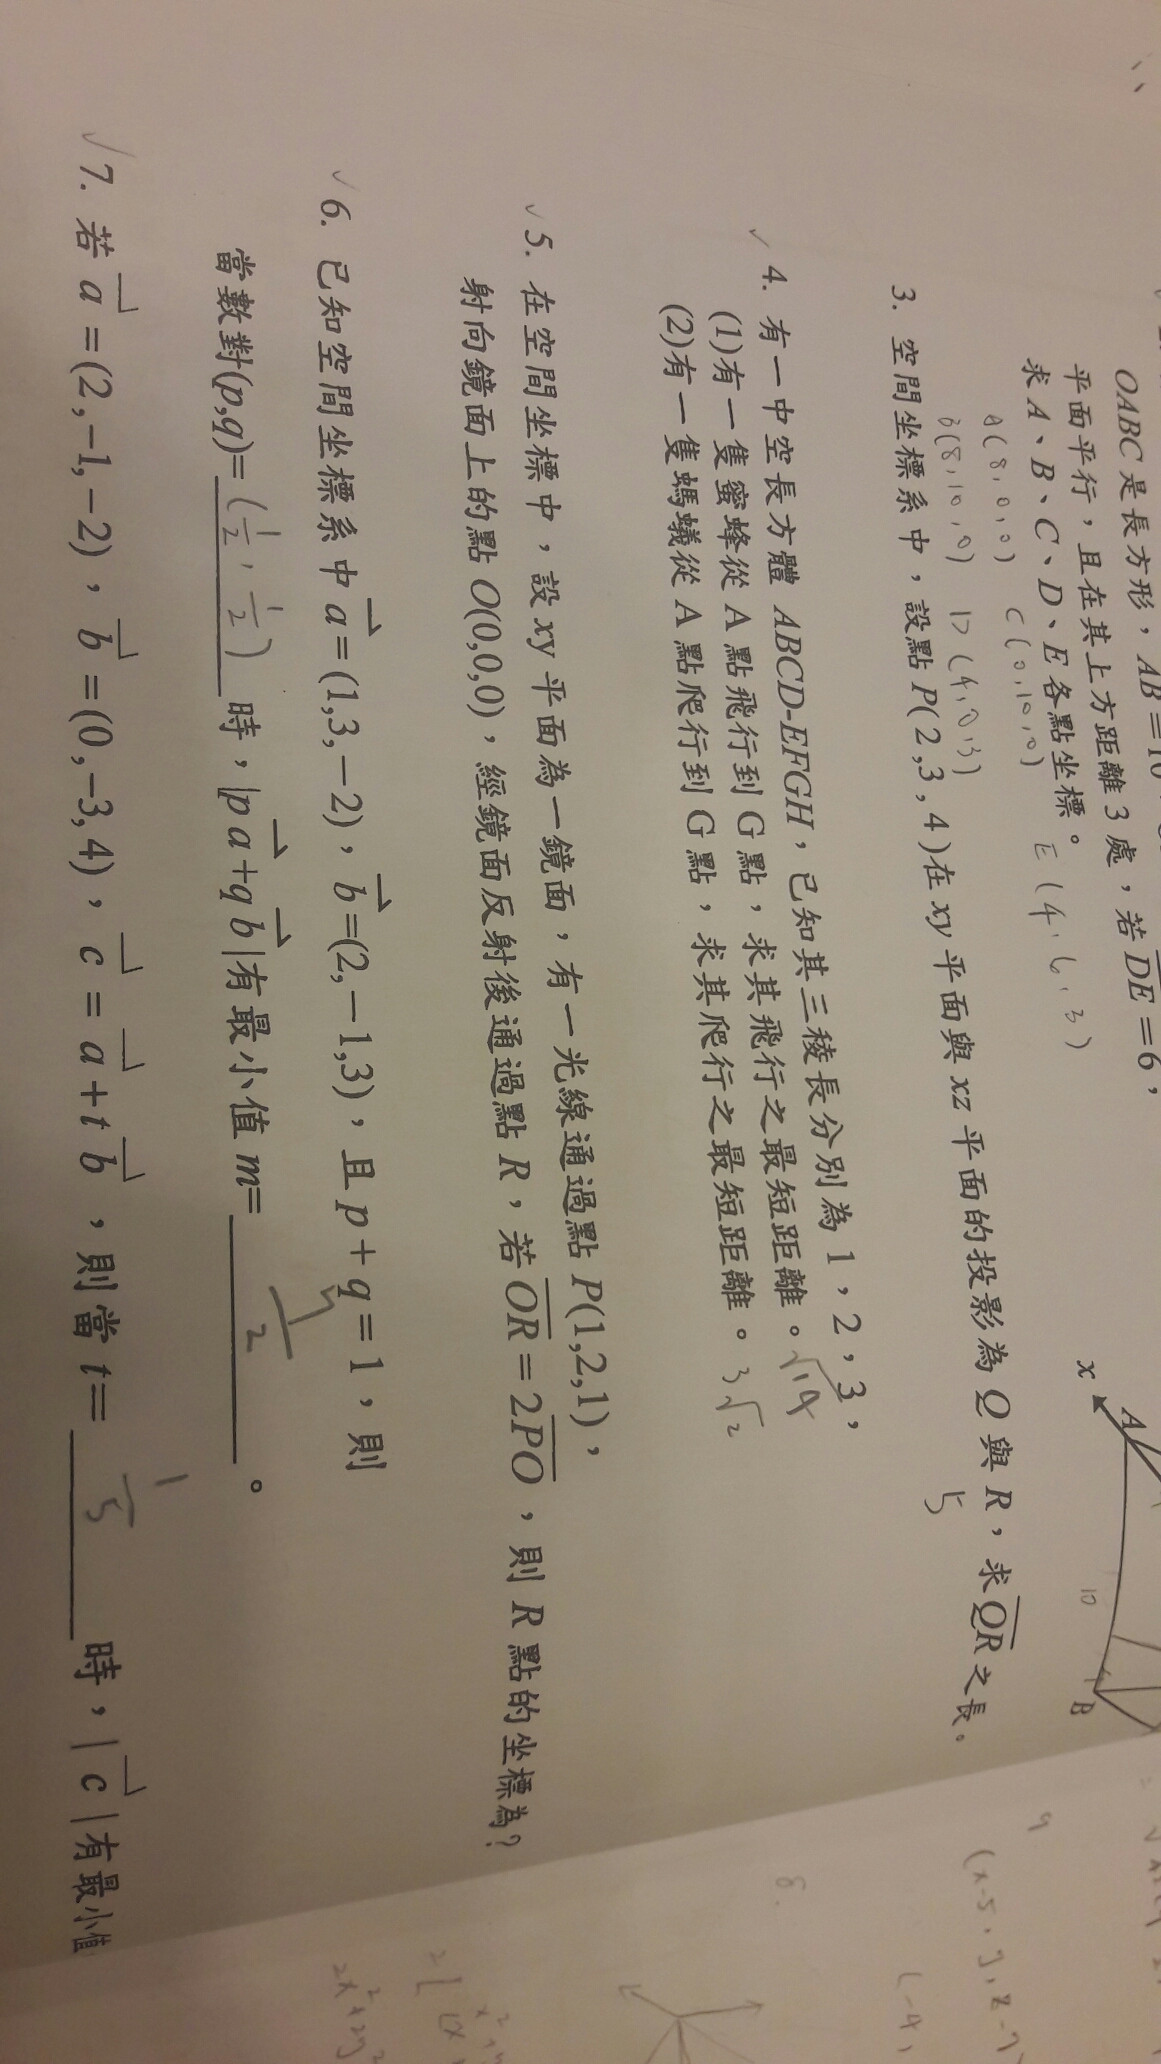 OABC 是長方形，AB=10
平面平行，且在其上方距離 3 處，若 DE=6，
求 A、B、C、D、E 各點坐標。 E(4,6,3)
A(8,0,0) C(0,10,0)
B(8,10,0) D(4,0,3)
3. 空間坐標系中，設點 P(2,3,4) 在 xy 平面與 xz 平面的投影為 Q 與 R，求 QR 之長。
5
✓ 4. 有一中空長方體 ABCD-EFGH，已知其三稜長分別為 1，2，3，
(1)有一隻蜜蜂從 A 點飛行到 G 點，求其飛行之最短距離。√14
(2)有一隻螞蟻從 A 點爬行到 G 點，求其爬行之最短距離。3√2
✓ 5. 在空間坐標中，設 xy 平面為一鏡面，有一光線通過點 P(1,2,1)，
射向鏡面上的點 O(0,0,0)，經鏡面反射後通過點 R，若 OR=2PO，則 R 點的坐標為?
✓ 6. 已知空間坐標系中 a=(1,3,−2)，b=(2,−1,3)，且 p+q=1，則
當數對(p,q)=(1/2,1/2) 時，|pa+qb|有最小值 m= 。
✓ 7. 若 a=(2,−1,−2)，b=(0,−3,4)，c=a+tb，則當 t=1/5 時，|c|有最小值
x
A
10
B
(x-5,y,z-7)
(-4,
8.